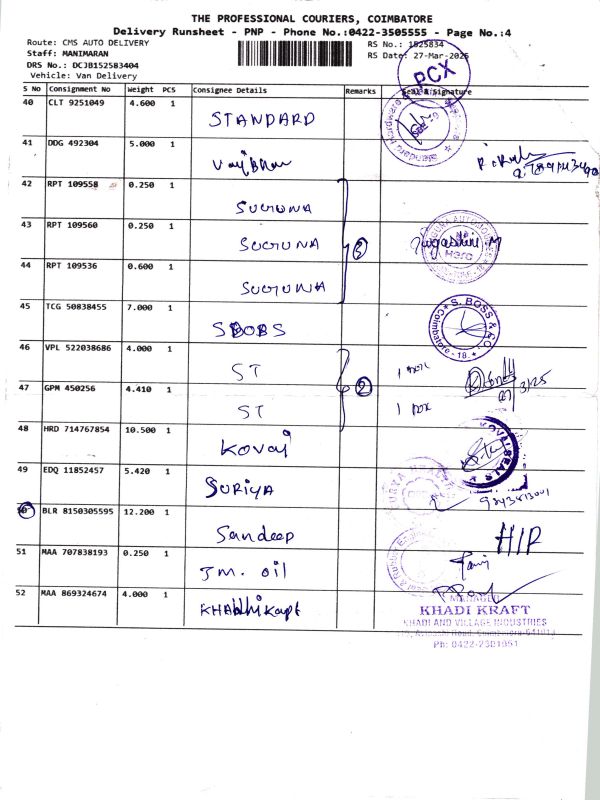 THE PROFESSIONAL COURIERS, COIMBATORE
Delivery Runsheet - PNP - Phone No.:0422-3505555 - Page No.:4
Route: CMS AUTO DELIVERY
RS No.: 1525834
Staff: MANIMARAN
RS Date: 27-Mar-2025
DRS No.: DCJB152583404
Vehicle: Van Delivery
PCX
S No Consignment No Weight PCS Consignee Details Remarks Seal & Signature
40 CLT 9251049 4.600 1 STANDARD
41 DDG 492304 5.000 1
42 RPT 109558 0.250 1 SUGUNA
43 RPT 109560 0.250 1 SUGUNA ③
44 RPT 109536 0.600 1 SUGUNA
45 TCG 50838455 7.000 1 SBOBS
S. BOSS & CO.
Coimbatore - 18.
46 VPL 522038686 4.000 1 ST 1 box
47 GPM 450256 4.410 1 ST ② 1 box
48 HRD 714767854 10.500 1 Kovai
KOVAI SEALS
49 EDQ 11852457 5.420 1 SURIYA
50 BLR 8150305595 12.200 1 Sandeep
51 MAA 707838193 0.250 1 JM. oil
52 MAA 869324674 4.000 1 KHAdhi Kraft
MANAGER
KHADI KRAFT
KHADI AND VILLAGE INDUSTRIES
Ph: 0422-2301951